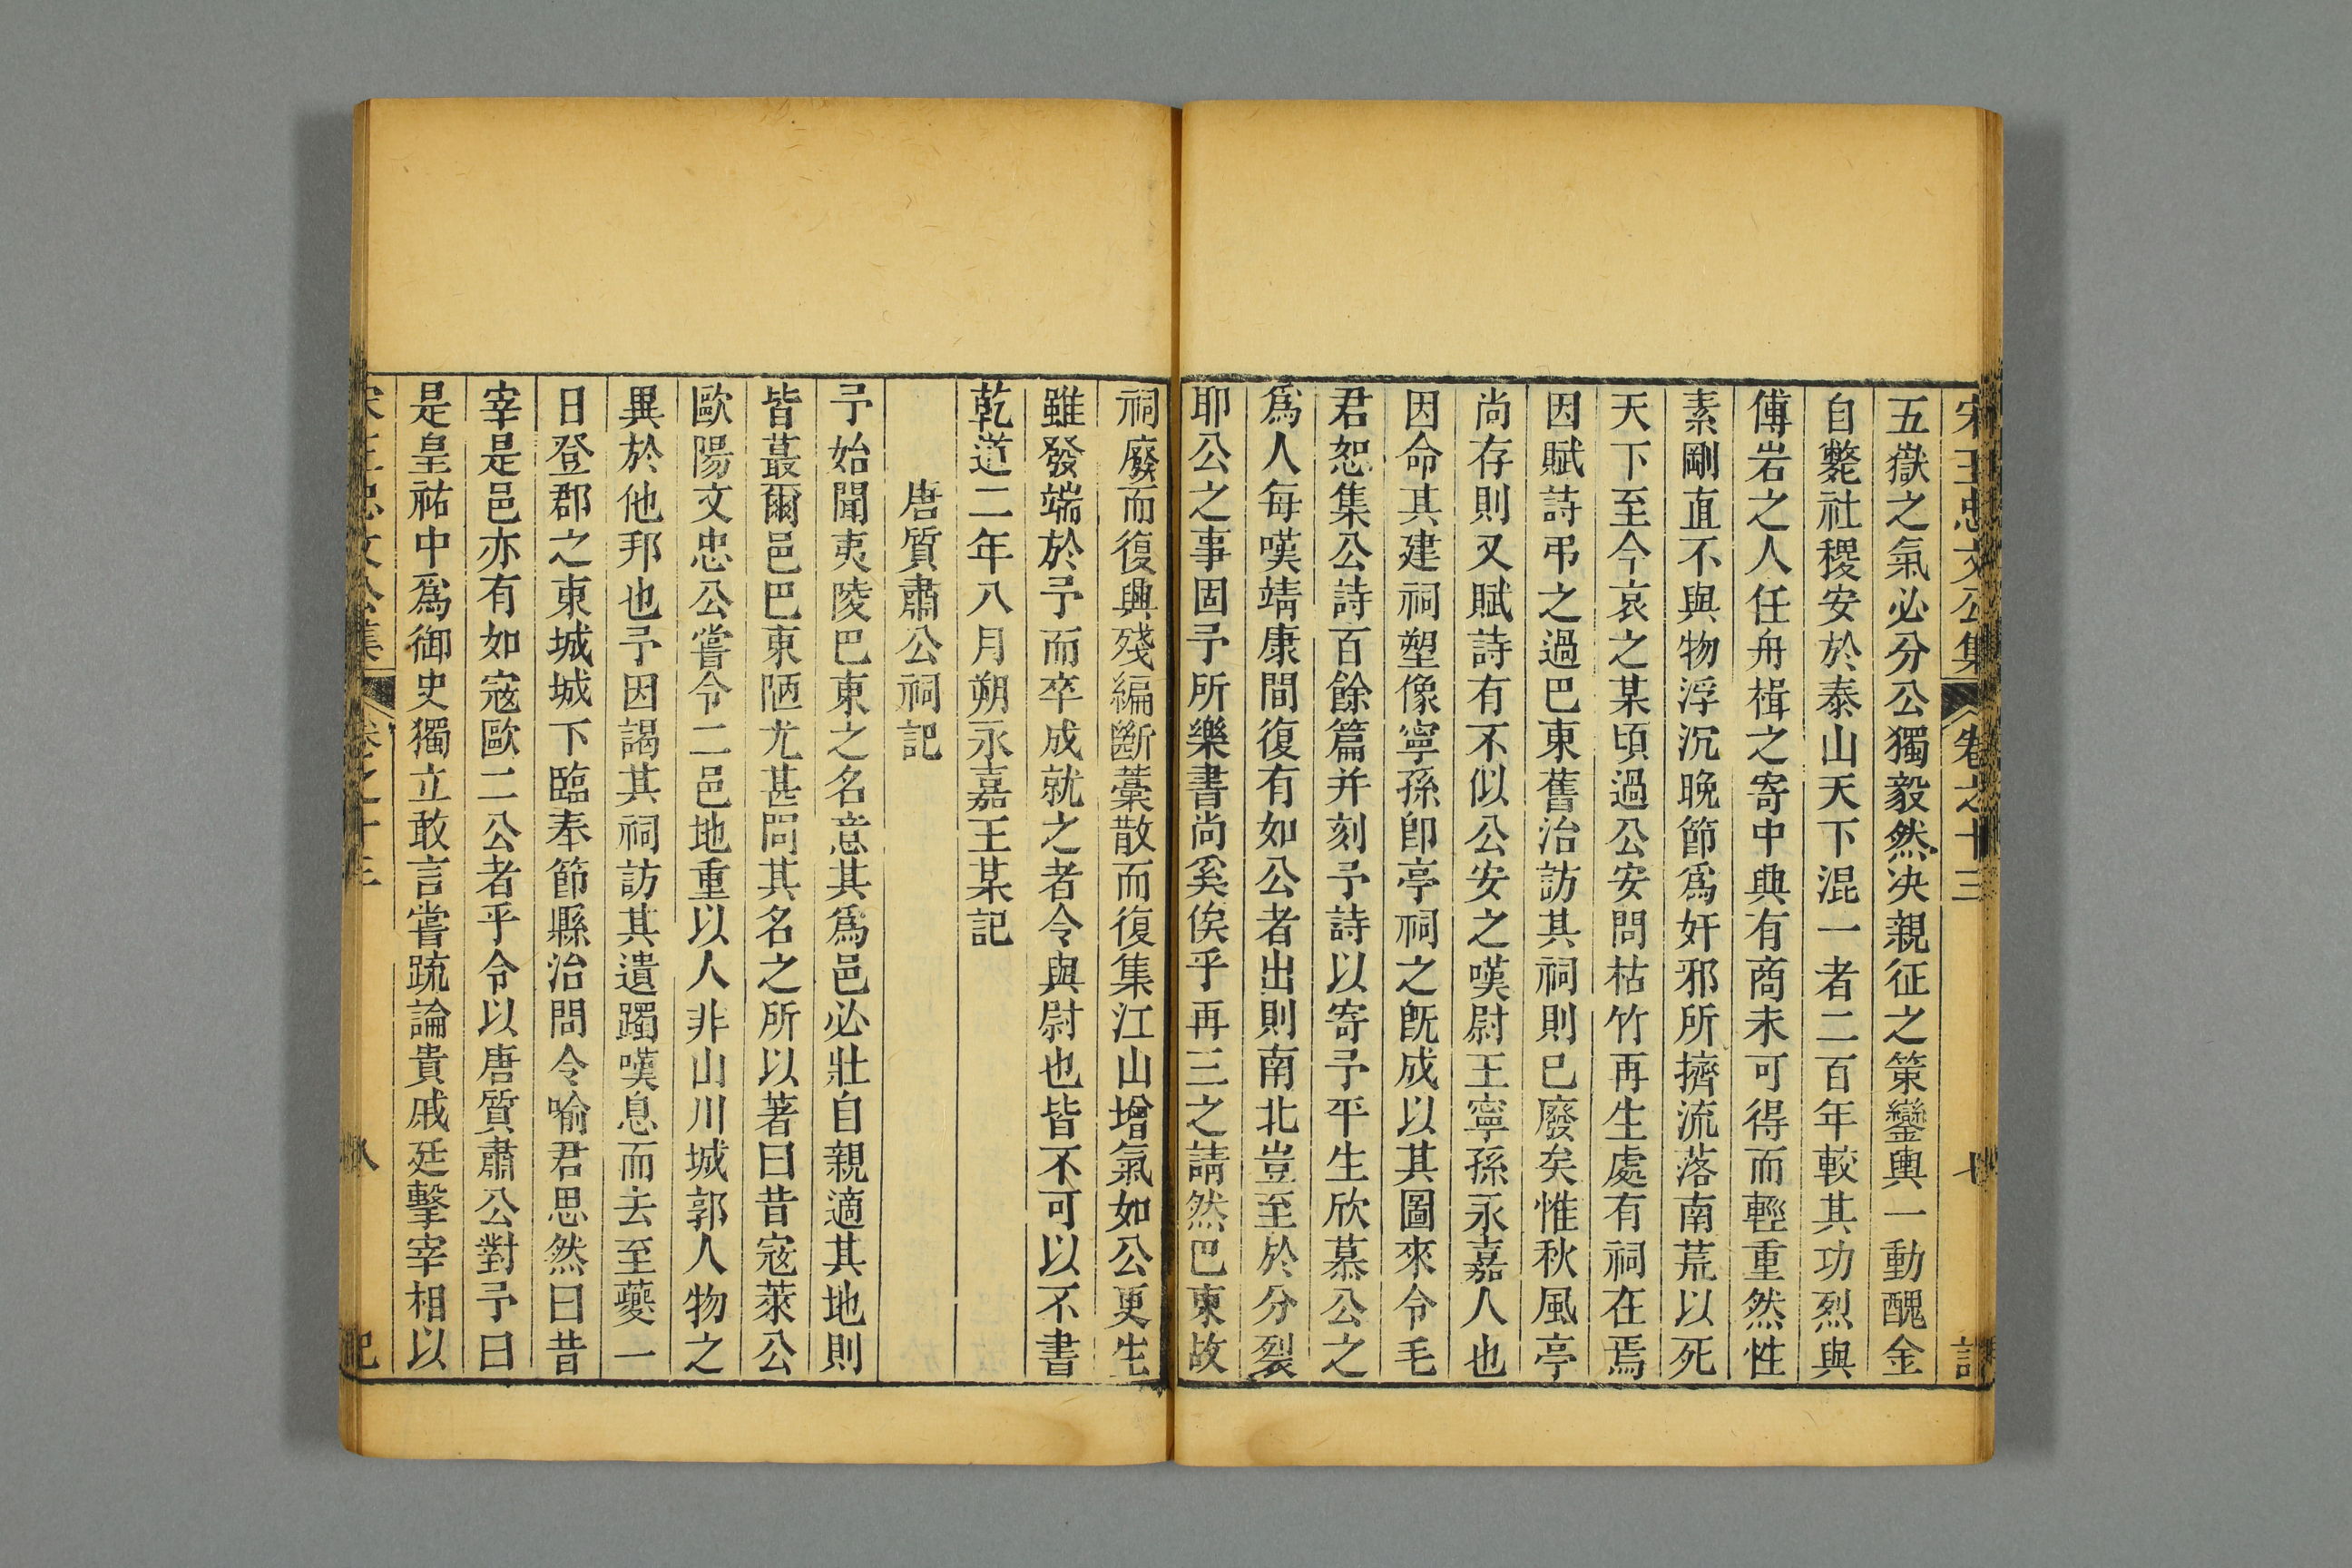 宋王忠文公集 卷之十三 七 記
五嶽之氣必分公獨毅然决親征之策鑾輿一動醜金
自斃社稷安於泰山天下混一者二百年較其功烈與
傅岩之人任舟楫之寄中興有商未可得而輕重然性
素剛直不與物浮沉晚節爲奸邪所擠流落南荒以死
天下至今哀之某頃過公安問枯竹再生處有祠在焉
因賦詩弔之過巴東舊治訪其祠則已廢矣惟秋風亭
尚存則又賦詩有不似公安之嘆尉王寧孫永嘉人也
因命其建祠塑像寧孫卽亭祠之旣成以其圖來令毛
君恕集公詩百餘篇并刻予詩以寄予平生欣慕公之
爲人每嘆靖康間復有如公者出則南北豈至於分裂
耶公之事固予所樂書尚奚俟乎再三之請然巴東故
祠廢而復興殘編斷藁散而復集江山增氣如公更生
雖發端於予而卒成就之者令與尉也皆不可以不書
乾道二年八月朔永嘉王某記
唐質肅公祠記
予始聞夷陵巴東之名意其爲邑必壯自親適其地則
皆蕞爾邑巴東陋尤甚問其名之所以著曰昔寇萊公
歐陽文忠公嘗令二邑地重以人非山川城郭人物之
異於他邦也予因謁其祠訪其遺躅嘆息而去至夔一
日登郡之東城城下臨奉節縣治問令喻君思然曰昔
宰是邑亦有如寇歐二公者乎令以唐質肅公對予曰
是皇祐中爲御史獨立敢言嘗䟽論貴戚廷擊宰相以
宋王忠文公集 卷之十三 八 記